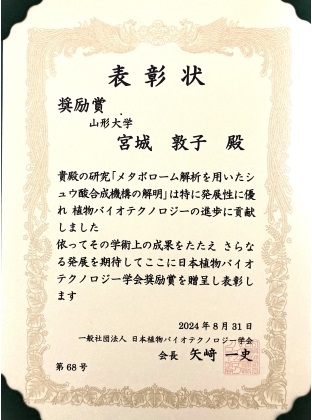 表彰状
奨励賞
山形大学
宮城 敦子 殿
貴殿の研究「メタボローム解析を用いたシ
ュウ酸合成機構の解明」は特に発展性に優
れ 植物バイオテクノロジーの進歩に貢献
しました
依ってその学術上の成果をたたえ さらな
る発展を期待してここに日本植物バイオ
テクノロジー学会奨励賞を贈呈し表彰し
ます
2024年8月31日
一般社団法人 日本植物バイオテクノロジー学会
会長 矢﨑 一史
第68号